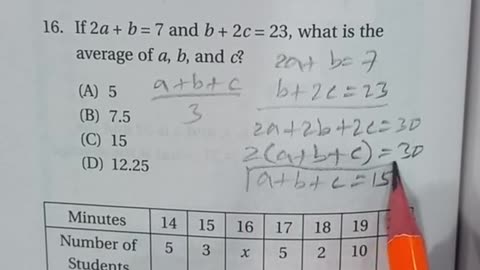 16. If 2a + b = 7 and b + 2c = 23, what is the
average of a, b, and c?
(A) 5
(B) 7.5
(C) 15
(D) 12.25
a+b+c
3
2a+ b=7
b+2c=23
2a+2b+2c=30
2(a+b+c)=30
a+b+c=15
Minutes 14 15 16 17 18 19
Number of 5 3 x 5 2 10
Students